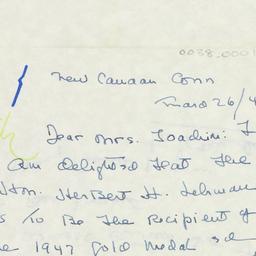 0038.0001
New Canaan Conn
26/4
Dear Mrs. Joachim: I
am delighted that the
Hon. Herbert H. Lehman
is to be the recipient of
1947 Gold Medal